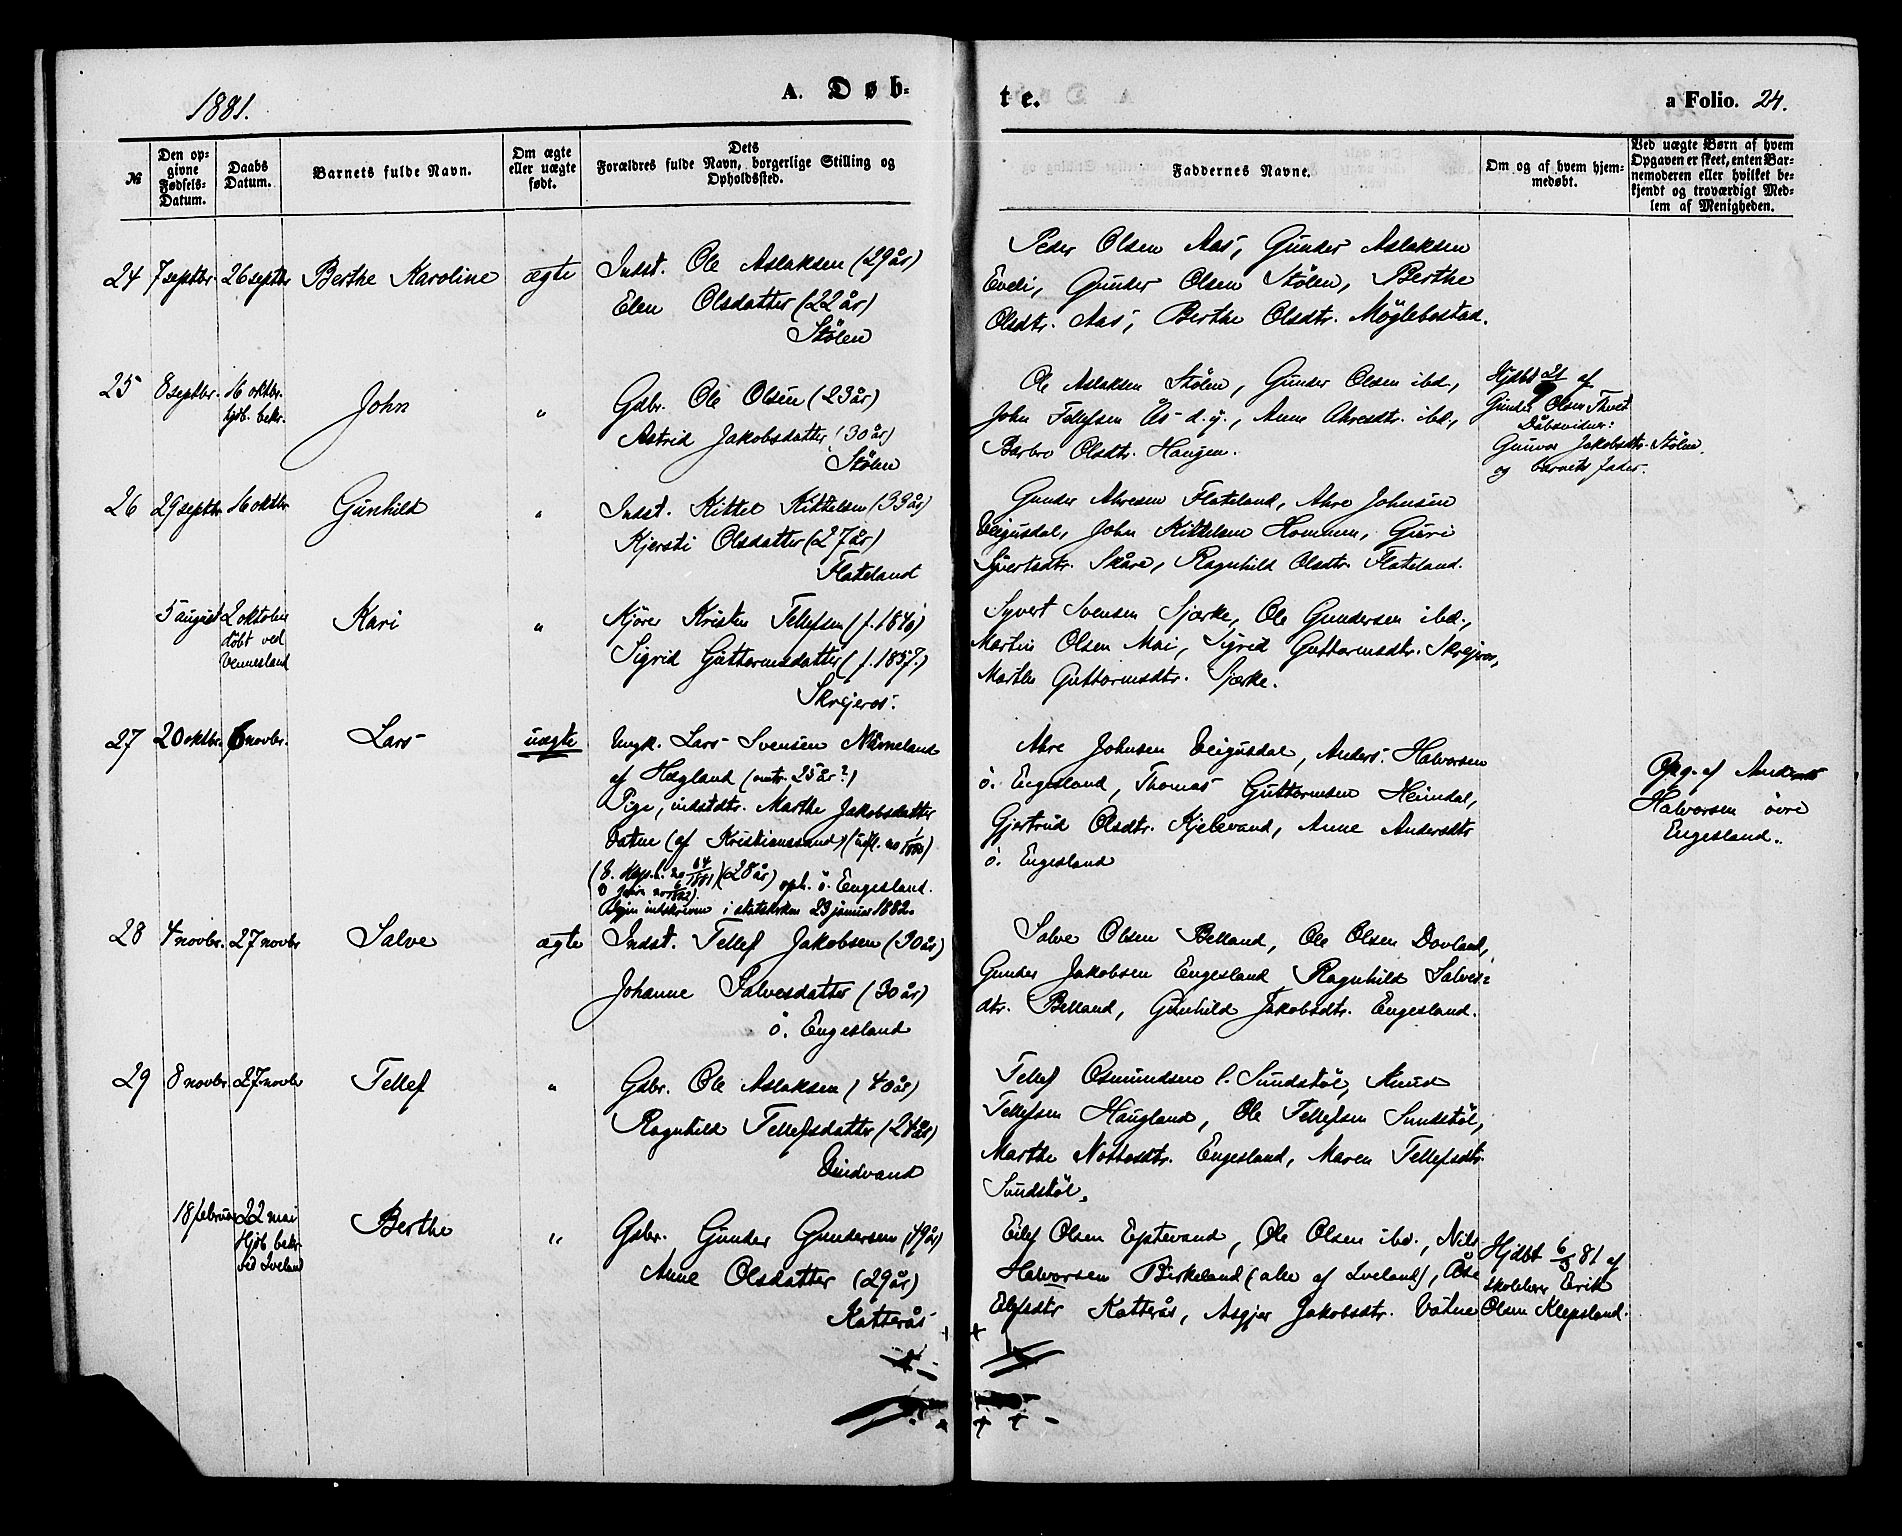 1881.
A. Døb-
te.
a Folio. 24.
№
Den op-
givne
Fødsels-
Datum.
Daabs
Datum.
Barnets fulde Navn.
Om ægte
eller uægte
født.
Dets
Forældres fulde Navn, borgerlige Stilling og
Opholdssted.
Faddernes Navne.
Om og af hvem hjem-
medøbt.
Ved uægte Børn af hvem
Opgaven er skeet, enten Bar-
nemoderen eller hvilket be-
kjendt og troværdigt Med-
lem af Menigheden.
24 7 septbr. 26 septbr Berthe Karoline ægte
Indst. Ole Aslaksen (29 år)
Elen Olsdatter (22 år)
Stølen
Peder Olsen Aas, Gunder Aslaksen
Eveli, Gunder Olsen Stølen, Berthe
Olsdtr. Aas, Berthe Olsdtr. Möglebostad.
25 8 septbr. 16 oktbr.
hjb. bekr.
John "
Gbr. Ole Olsen (23 år)
Astrid Jakobsdatter (30 år)
Stølen
Ole Aslaksen Stølen, Gunder Olsen ibd.,
John Tellefsen Ås d. y., Anne Ahresdtr. ibd.,
Barbro Olsdtr. Haugen.
Hjdbt 21/9 af
Gunder Olsen Tveit
Dåbsvidner:
Gunvor Jakobsdtr. Stølen
og barnets fader.
26 29 septbr 16 oktbr Gunhild "
Indst. Kittel Kittelsen (33 år)
Kjersti Olsdatter (27 år)
Flateland
Gunder Ahresen Flateland, Ahre Johnsen
Veigusdal, John Kittelsen Hommen, Guri
Sjvertsdtr. Skåre, Ragnhild Olsdtr. Flateland.
5 august 2 oktober
döbt ved
Vennesland
Kari "
Kjörer Kristen Tellefsen (f. 1840)
Sigrid Guttormsdatter (f. 1857.)
Skrejeros.
Syvert Svensen Sjærke, Ole Gundersen ibd.,
Martin Olsen Mai, Sigrid Guttormsdtr. Skrejeros,
Marthe Guttormsdtr. Sjærke.
27 20 oktbr. 6 novbr. Lars uægte
Ungk. Lars Svensen Nåmeland
af Hægland (omtr. 25 år?)
Pige, indstdtr. Marthe Jakobsdatter
Vatne (af Kristianssand)
(28 år) oph. ö. Engesland.
Igjen indskreven i statskirken 23 januar 1882.
Ahre Johnsen Veigusdal, Anders Halvorsen
ö. Engesland, Thomas Guttormsen Heimdal,
Gjertrud Olsdtr. Kjelevand, Anne Andersdtr
ö. Engesland
Opg. af Anders
Halvorsen övre
Engesland.
28 4 novbr. 27 novbr Salve ægte
Indst. Tellef Jakobsen (30 år)
Johanne Salvesdatter (30 år)
ö. Engesland
Salve Olsen Belland, Ole Olsen Dovland,
Gunder Jakobsen Engesland Ragnhild Salves-
dtr. Belland, Gunhild Jakobsdtr. Engesland.
29 8 novbr. 27 novbr Tellef "
Gbr. Ole Aslaksen (40 år)
Ragnhild Tellefsdatter (24 år)
Vindvand
Tellef Osmundsen l. Sundstöl, Knud
Tellefsen Haugland, Ole Tellefsen Sundstöl,
Marthe Nottosdtr. Engesland, Maren Tellefsdtr.
Sundstöl.
18 februar 22 mai
Hjb. bekr.
ved Iveland
Berthe "
Gbr. Gunder Gundersen (49 år)
Anne Olsdatter (29 år)
Katterås
Eilef Olsen Eptevand, Ole Olsen ibd., Nils
Halvorsen Birkeland (alle af Iveland), Åse
Elefsdtr Katterås, Asgjer Jakobsdtr. Vatne
Hjdbt 6/3 81 af
skolelærer Erik
Olsen Klepsland.